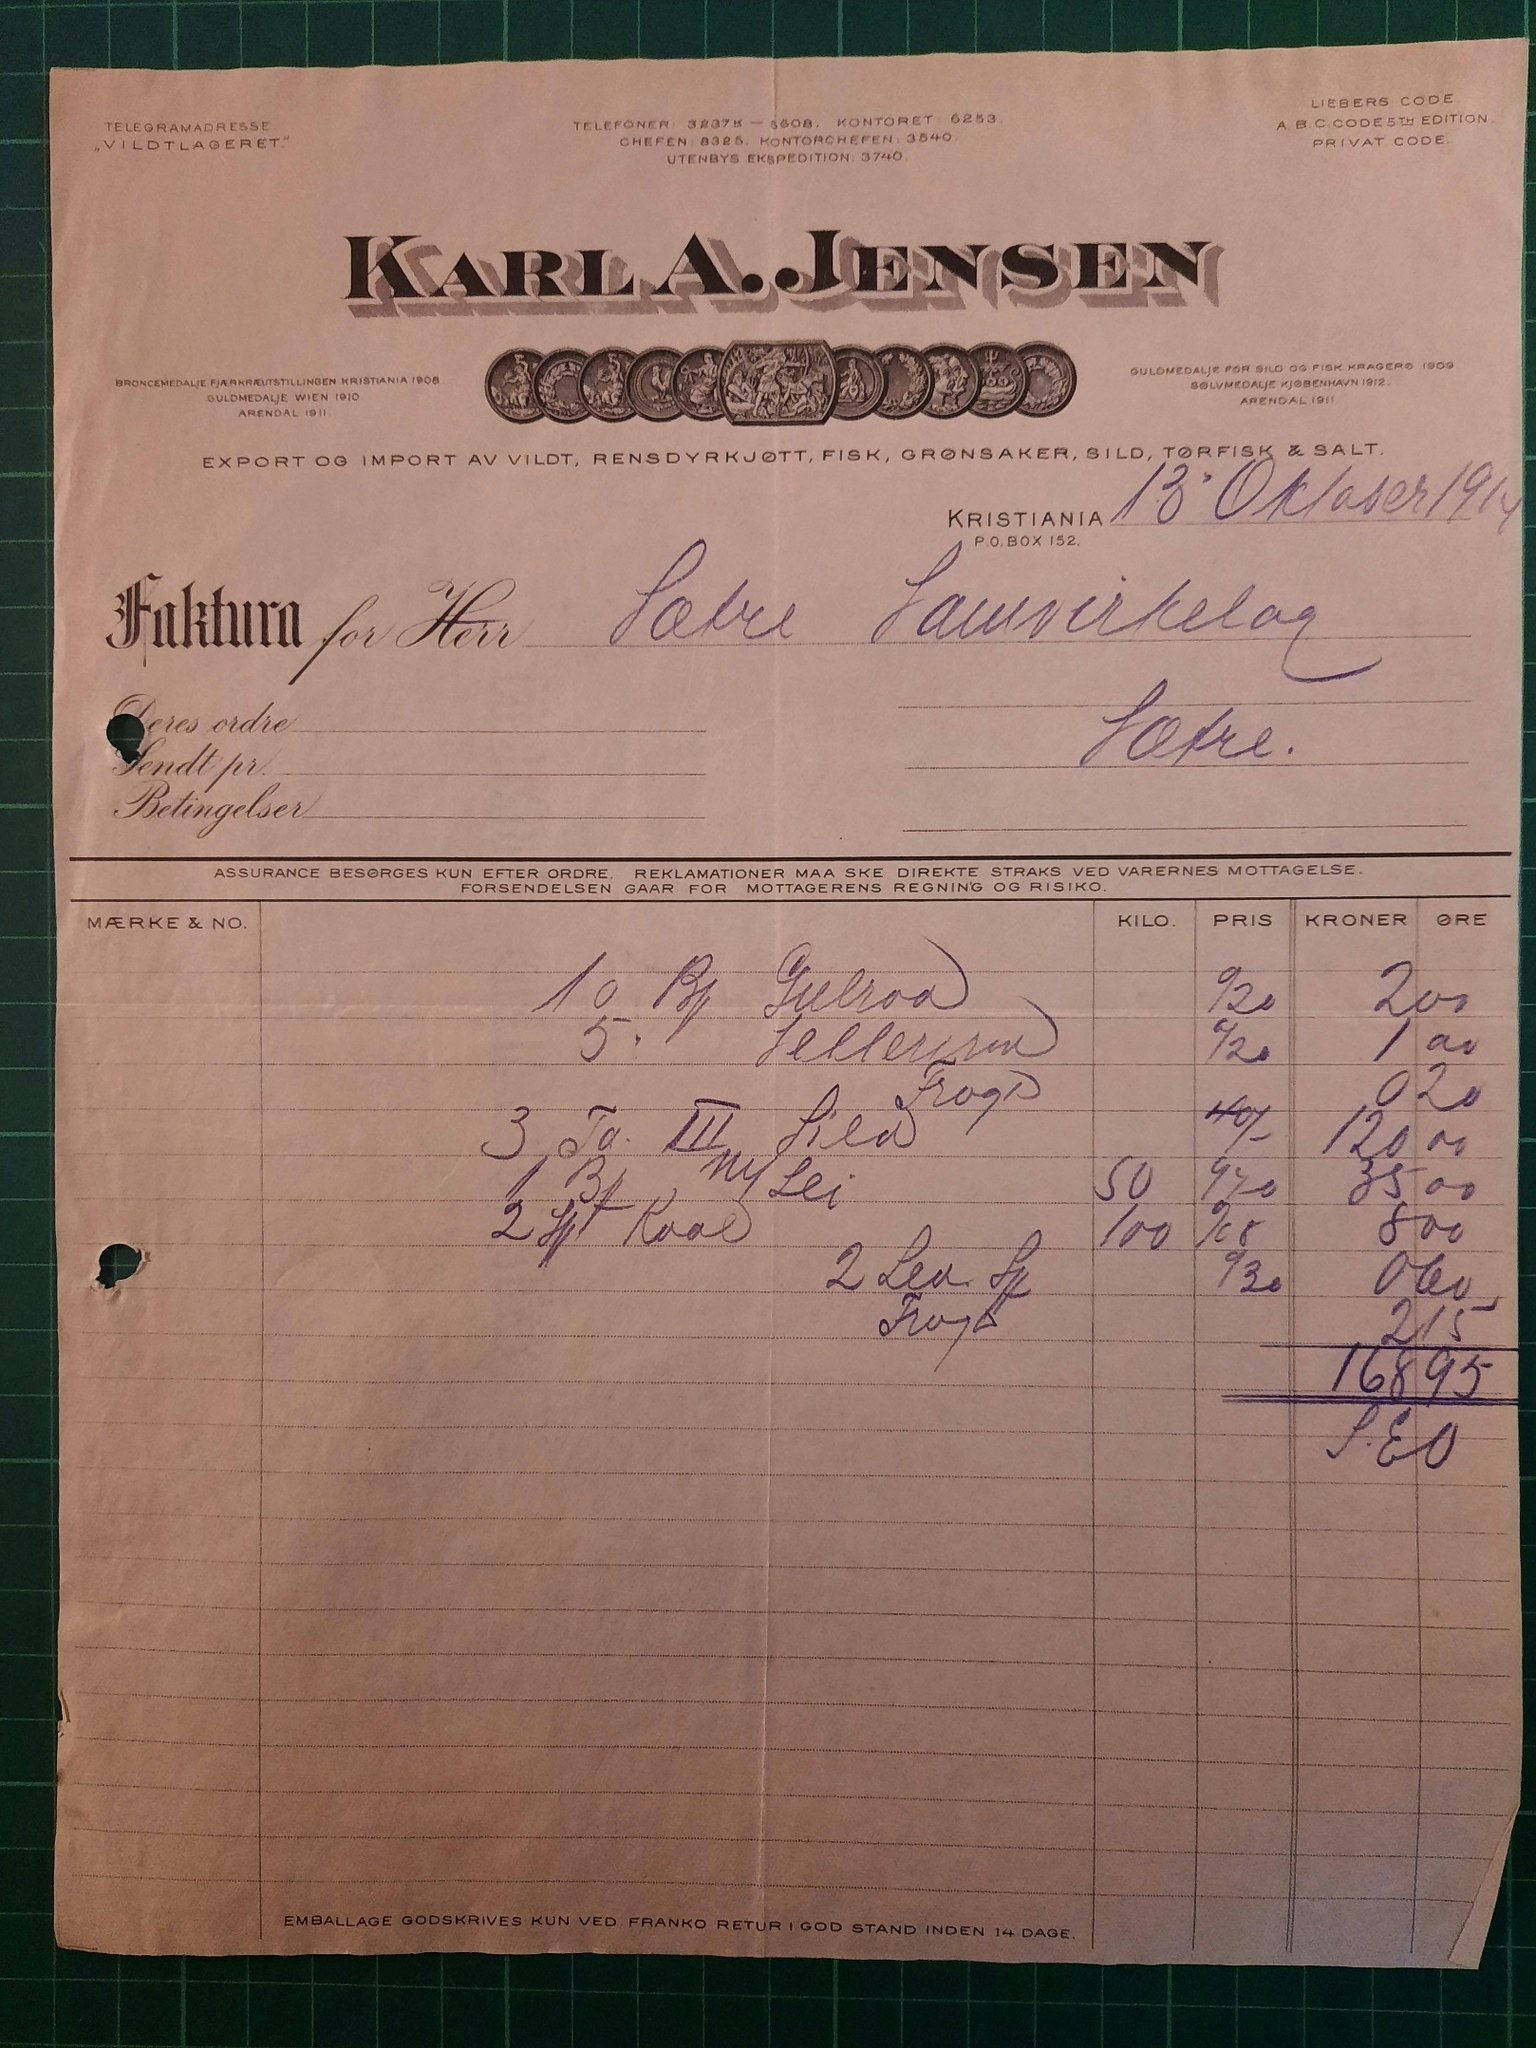 TELEGRAMADRESSE
„VILDTLAGERET."
TELEFONER: 32375 – 5608. KONTORET: 6253.
CHEFEN: 8325. KONTORCHEFEN: 3540.
UTENBYS EKSPEDITION: 3740.
LIEBERS CODE
A.B.C. CODE 5TH EDITION.
PRIVAT CODE.
KARL A. JENSEN
BRONCEMEDALJE FJÆRKRÆUTSTILLINGEN KRISTIANIA 1908.
GULDMEDALJE WIEN 1910
ARENDAL 1911.
GULDMEDALJE FOR SILD OG FISK KRAGERØ 1909
SØLVMEDALJE KJØBENHAVN 1912.
ARENDAL 1911
EXPORT OG IMPORT AV VILDT, RENSDYRKJØTT, FISK, GRØNSAKER, SILD, TØRFISK & SALT.
KRISTIANIA 13. Oktober 1914
P.O. BOX 152.
Faktura for Herr Sætre Samvirkelag
Sætre.
Deres ordre
Sendt pr.
Betingelser
ASSURANCE BESØRGES KUN EFTER ORDRE. REKLAMATIONER MAA SKE DIREKTE STRAKS VED VARERNES MOTTAGELSE.
FORSENDELSEN GAAR FOR MOTTAGERENS REGNING OG RISIKO.
MÆRKE & NO. KILO. PRIS KRONER ØRE
10 Bp Gulrod /20 2 00
5 " Selleri /20 1 00
Fragt 0 20
3 Tø. III Sild 40/- 120 00
1 Bp ny Sei 50 /70 35 00
2 Sp Kaal 100 /08 8 00
2 Sp /30 0 60
Fragt 2 15
168 95
S.E&O
EMBALLAGE GODSKRIVES KUN VED FRANKO RETUR I GOD STAND INDEN 14 DAGE.